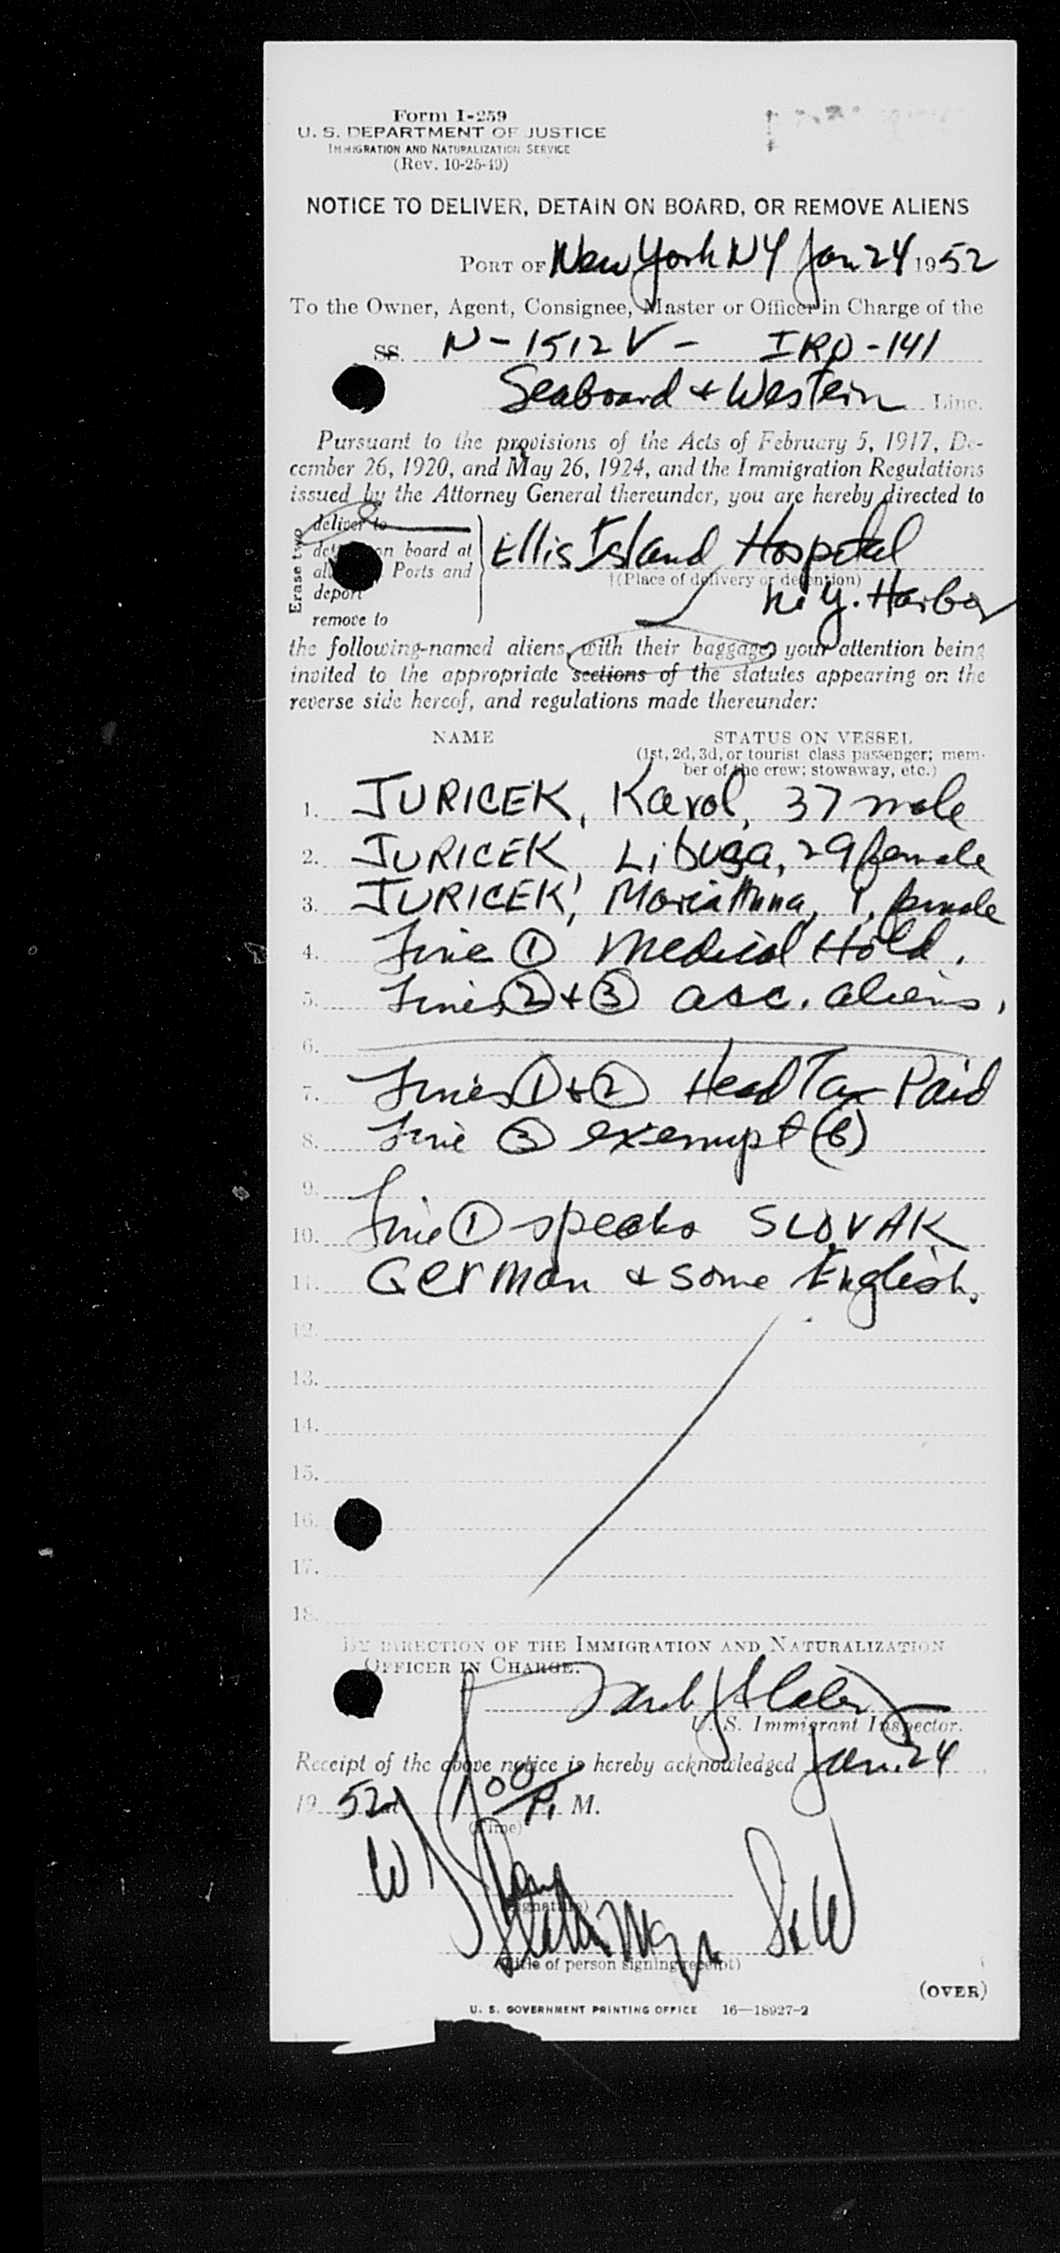 Form I-259
U. S. DEPARTMENT OF JUSTICE
IMMIGRATION AND NATURALIZATION SERVICE
(Rev. 10-25-49)
NOTICE TO DELIVER, DETAIN ON BOARD, OR REMOVE ALIENS
PORT OF New York NY Jan 24 1952
To the Owner, Agent, Consignee, Master or Officer in Charge of the
SS. N-1512V - IRO-141
Seaboard & Western Line.
Pursuant to the provisions of the Acts of February 5, 1917, De-
cember 26, 1920, and May 26, 1924, and the Immigration Regulations
issued by the Attorney General thereunder, you are hereby directed to
Erase two
deliver to
on board at
Ports and
deport
remove to
Ellis Island Hospital
†(Place of delivery or detention)
N.Y. Harbor
the following-named aliens, with their baggage, your attention being
invited to the appropriate sections of the statutes appearing on the
reverse side hereof, and regulations made thereunder:
NAME STATUS ON VESSEL
(1st, 2d, 3d, or tourist class passenger; mem-
ber of the crew; stowaway, etc.)
1. JURICEK, Karol, 37 male
2. JURICEK Libusa, 29 female
3. JURICEK, Maria Anna, 1, female
4. Line ① Medical Hold.
5. Lines ② + ③ acc. aliens.
6.
7. Lines ① + ② Head Tax Paid
8. Line ③ exempt (6)
9.
10. Line ① speaks SLOVAK
11. German & some English.
12.
13.
14.
15.
16.
17.
18.
BY DIRECTION OF THE IMMIGRATION AND NATURALIZATION
OFFICER IN CHARGE.
U. S. Immigrant Inspector.
Receipt of the above notice is hereby acknowledged Jan. 24
19 52 at 1 00 P. M.
(Time)
(Signature)
S & W
(Title of person signing receipt)
(OVER)
U. S. GOVERNMENT PRINTING OFFICE 16—18927-2